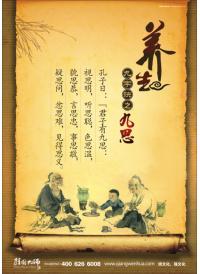 养生
九字诀之
九思
孔子曰：“君子有九思：
视思明，听思聪，色思温，
貌思恭，言思忠，事思敬，
疑思问，忿思难，见得思义。
400 626 6008
www.qiangwenhua.com